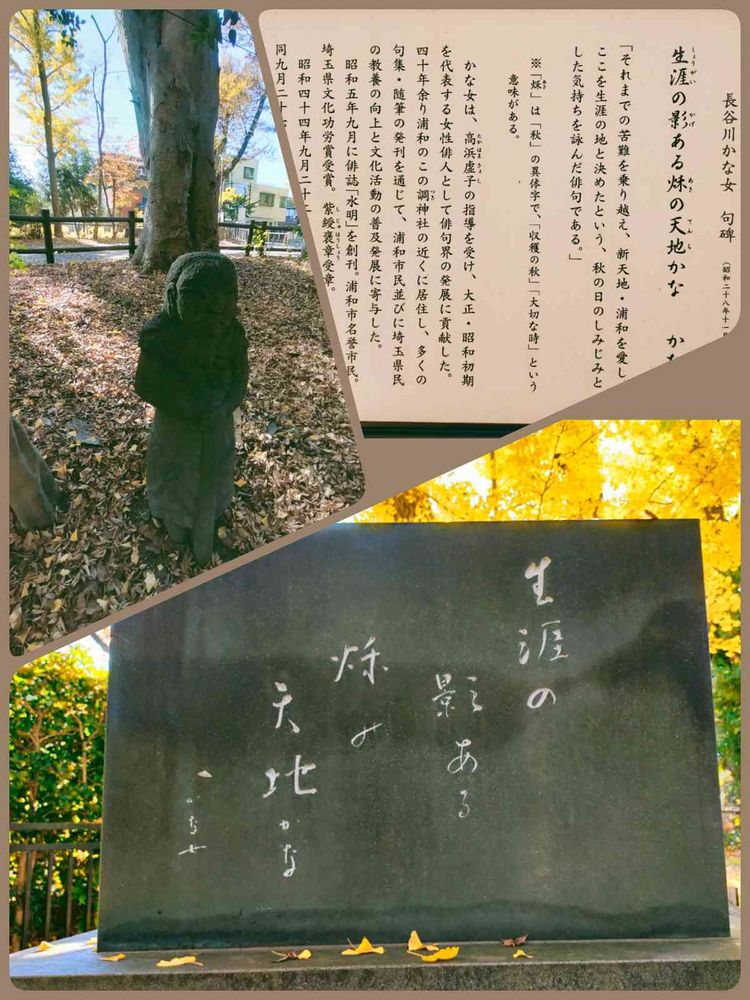 長谷川かな女　句碑
（昭和二十八年十一
生涯の影ある秌の天地かな　か
しょうがい　かげ　あき　てんち
「それまでの苦難を乗り越え、新天地・浦和を愛し
ここを生涯の地と決めたという、秋の日のしみじみと
した気持ちを詠んだ俳句である。」
※「秌」は「秋」の異体字で、「収穫の秋」「大切な時」という
あき
意味がある。
かな女は、高浜虚子の指導を受け、大正・昭和初期
たかはまきょし
を代表する女性俳人として俳句界の発展に貢献した。
四十年余り浦和のこの調神社の近くに居住し、多くの
つき
句集・随筆の発刊を通じて、浦和市民並びに埼玉県民
の教養の向上と文化活動の普及発展に寄与した。
昭和五年九月に俳誌「水明」を創刊。浦和市名誉市民。
埼玉県文化功労賞受賞。紫綬褒章受章。
しじゅほうしょう
昭和四十四年九月二十
同九月二十
生涯の
影ある
秌の
天地かな
かな女